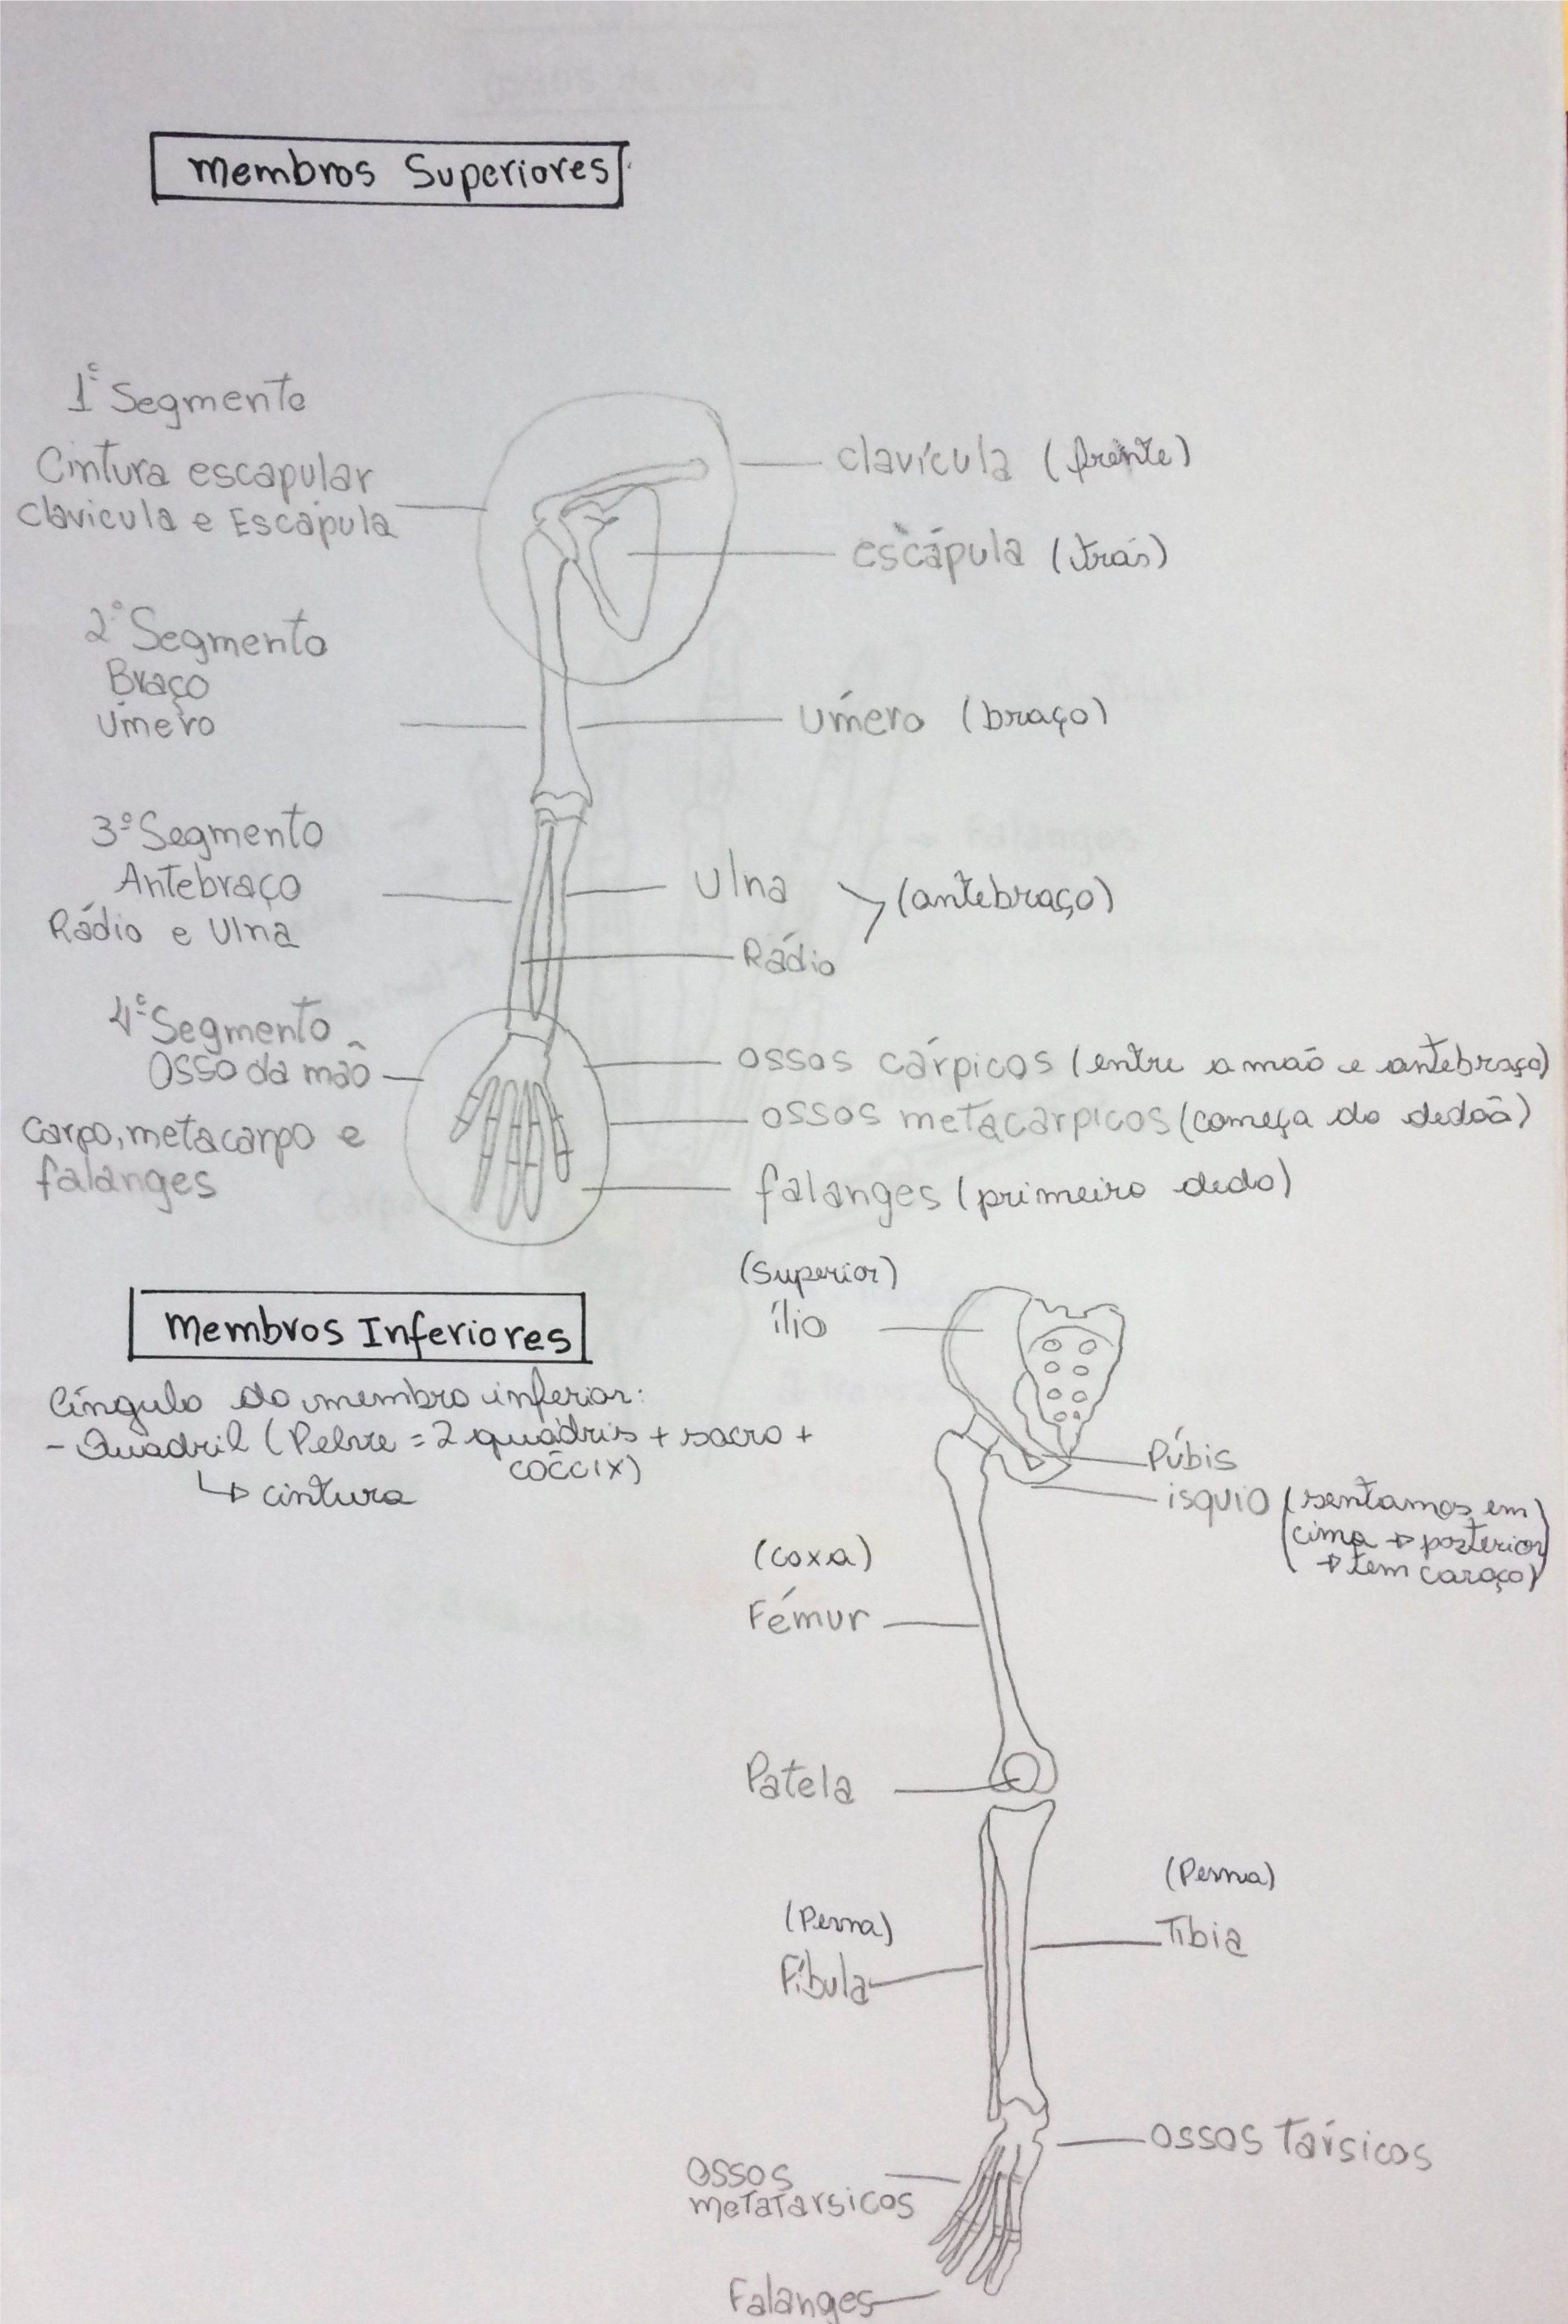 Membros Superiores
1º Segmento
Cintura escapular
Clavicula e Escápula
clavícula (frente)
escápula (trás)
2º Segmento
Braço
Úmero
Úmero (braço)
3º Segmento
Antebraço
Rádio e Ulna
Ulna
(antebraço)
Rádio
4º Segmento
Osso da mão
Carpo, metacarpo e
falanges
ossos cárpicos (entre a mão e antebraço)
ossos metacárpicos (começa do dedoã)
falanges (primeiro dedo)
Membros Inferiores
Cíngulo do membro inferior:
- Quadril (Pelve = 2 quadris + sacro +
cóccix)
↳ cintura
(Superior)
ílio
Púbis
isquio (sentamos em
cima → posterior
→ tem caroço)
(coxa)
Fémur
Patela
(Perna)
Tíbia
(Perna)
Fíbula
ossos társicos
ossos
metatársicos
Falanges